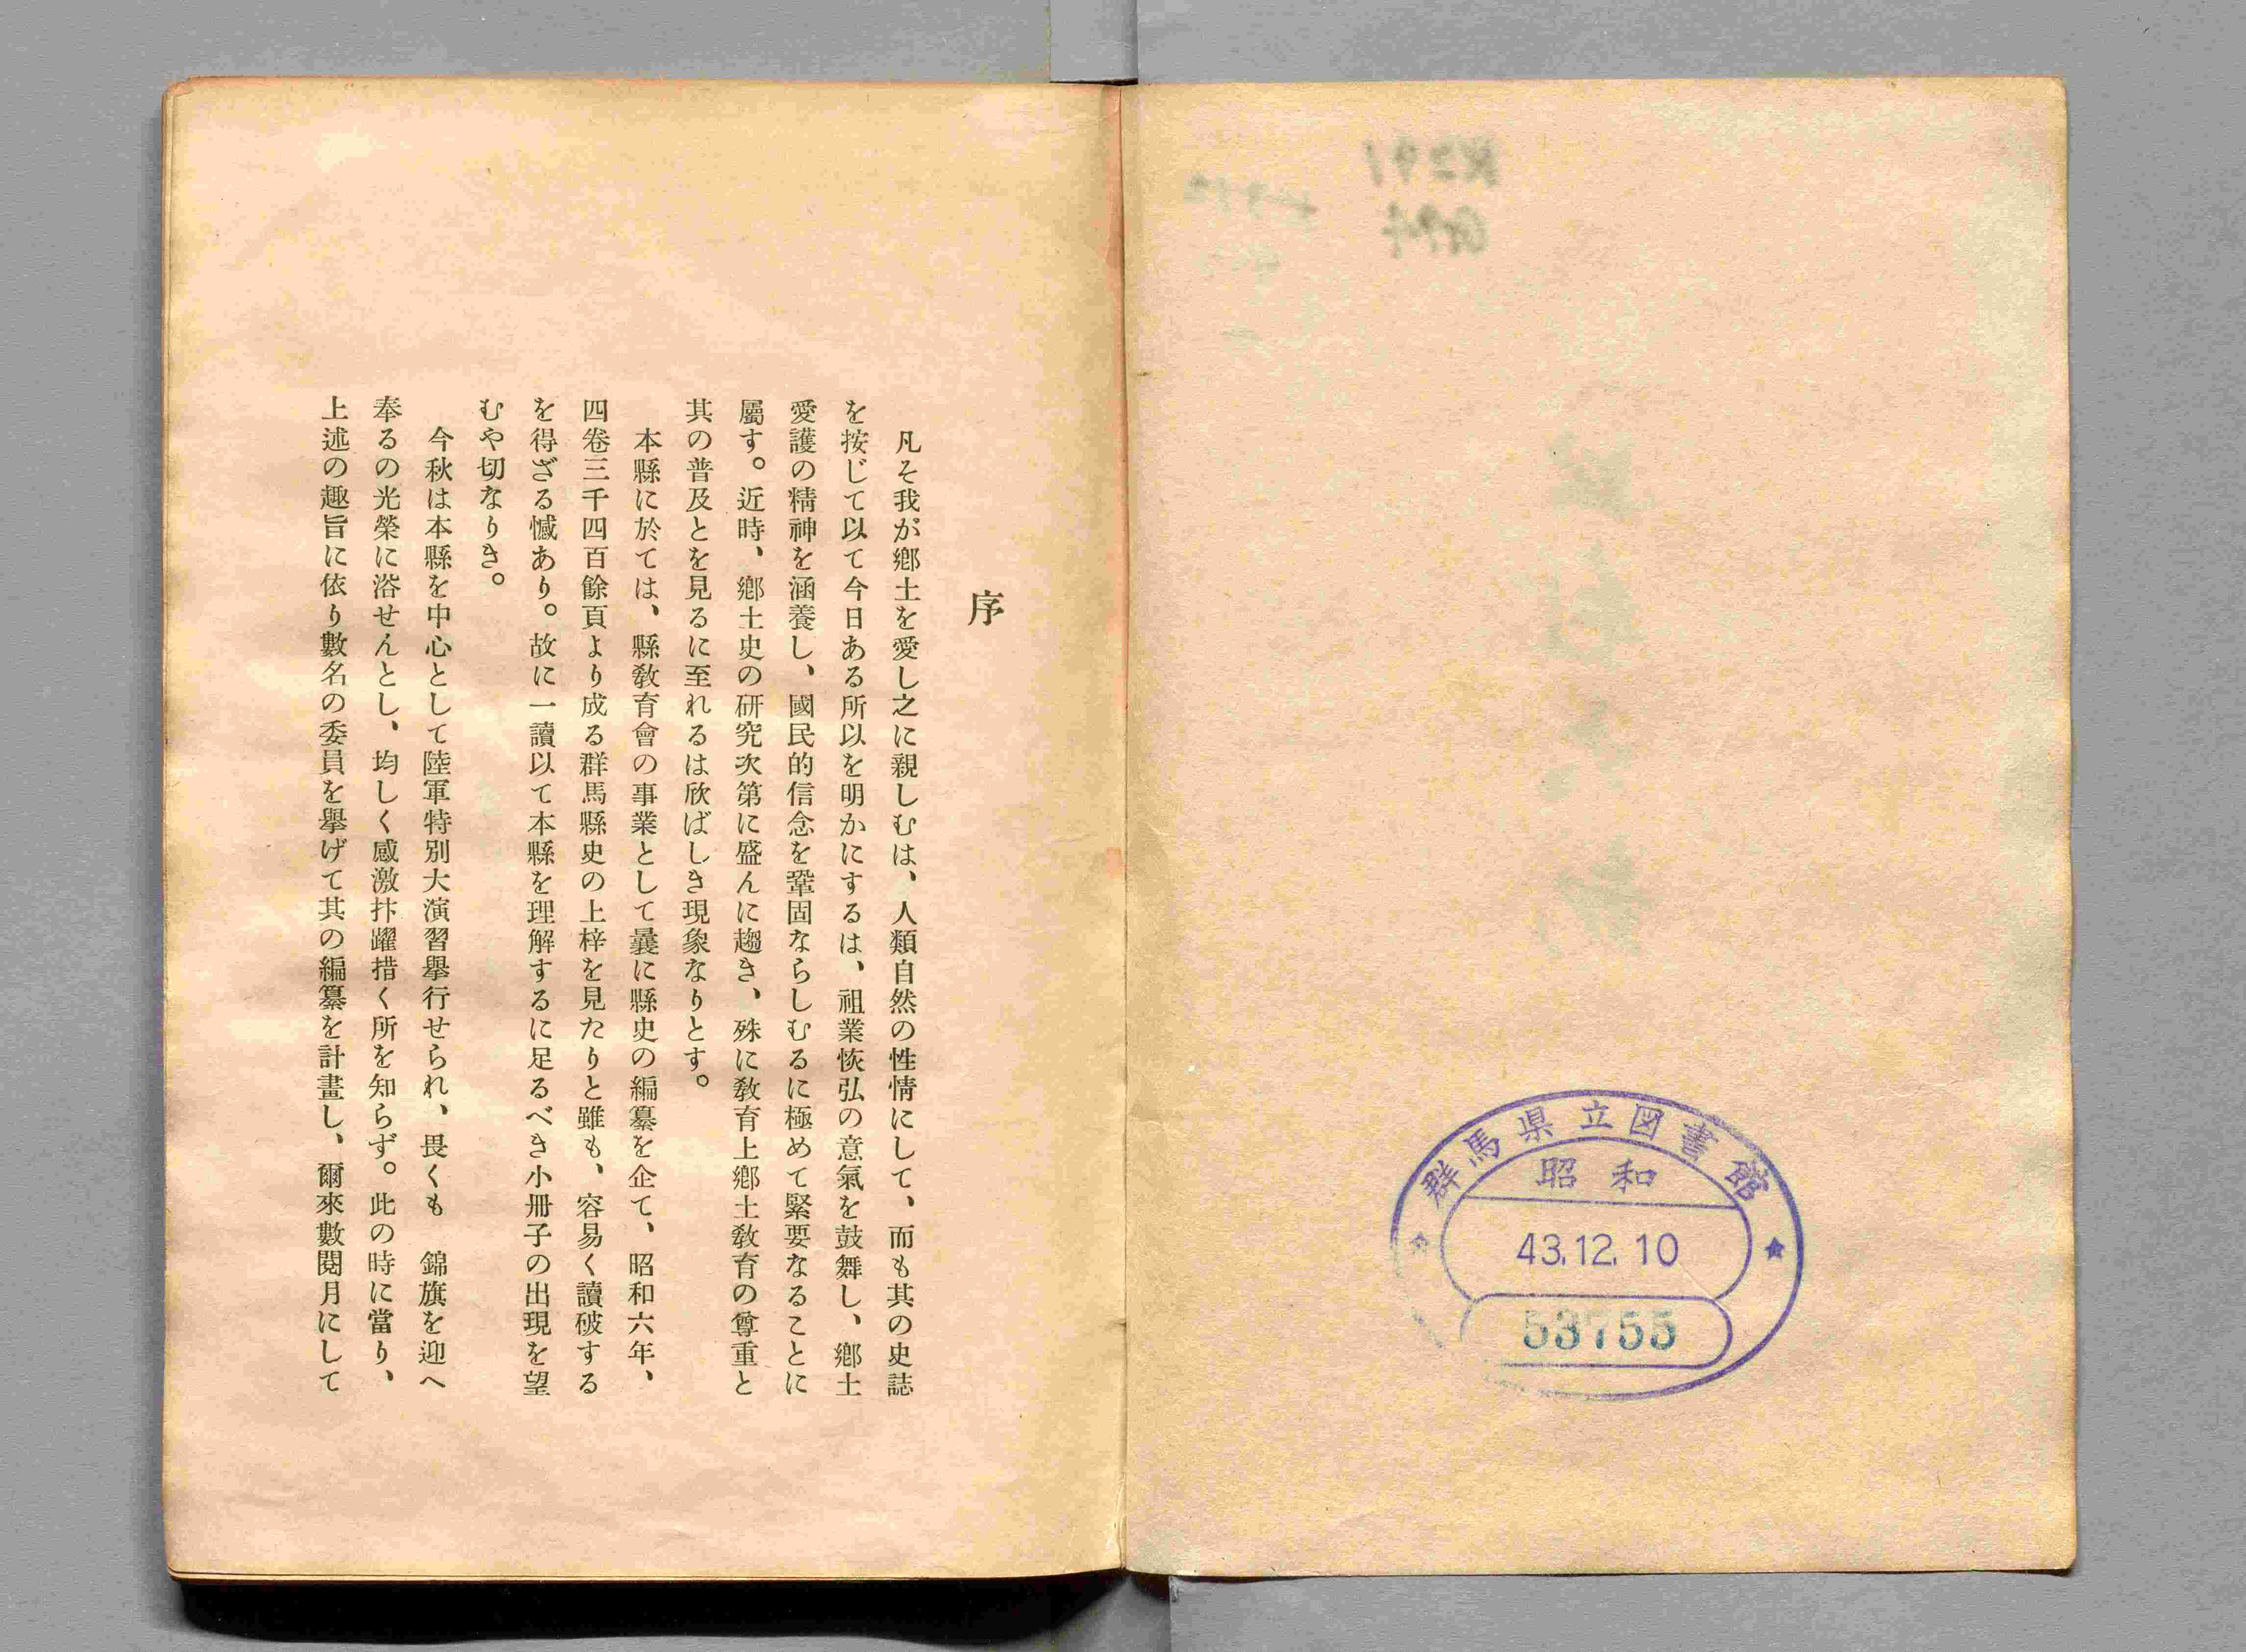 群馬県立図書館
昭和
43.12.10
53755
序
凡そ我が鄕土を愛し之に親しむは、人類自然の性情にして、而も其の史誌
を按じて以て今日ある所以を明かにするは、祖業恢弘の意氣を鼓舞し、鄕土
愛護の精神を涵養し、國民的信念を鞏固ならしむるに極めて緊要なることに
屬す。近時、鄕土史の硏究次第に盛んに趨き、殊に敎育上鄕土敎育の尊重と
其の普及とを見るに至れるは欣ばしき現象なりとす。
本縣に於ては、縣敎育會の事業として曩に縣史の編纂を企て、昭和六年、
四卷三千四百餘頁より成る群馬縣史の上梓を見たりと雖も、容易く讀破する
を得ざる憾あり。故に一讀以て本縣を理解するに足るべき小冊子の出現を望
むや切なりき。
今秋は本縣を中心として陸軍特別大演習擧行せられ、畏くも　錦旗を迎へ
奉るの光榮に浴せんとし、均しく感激抃躍措く所を知らず。此の時に當り、
上述の趣旨に依り數名の委員を擧げて其の編纂を計畫し、爾來數閱月にして